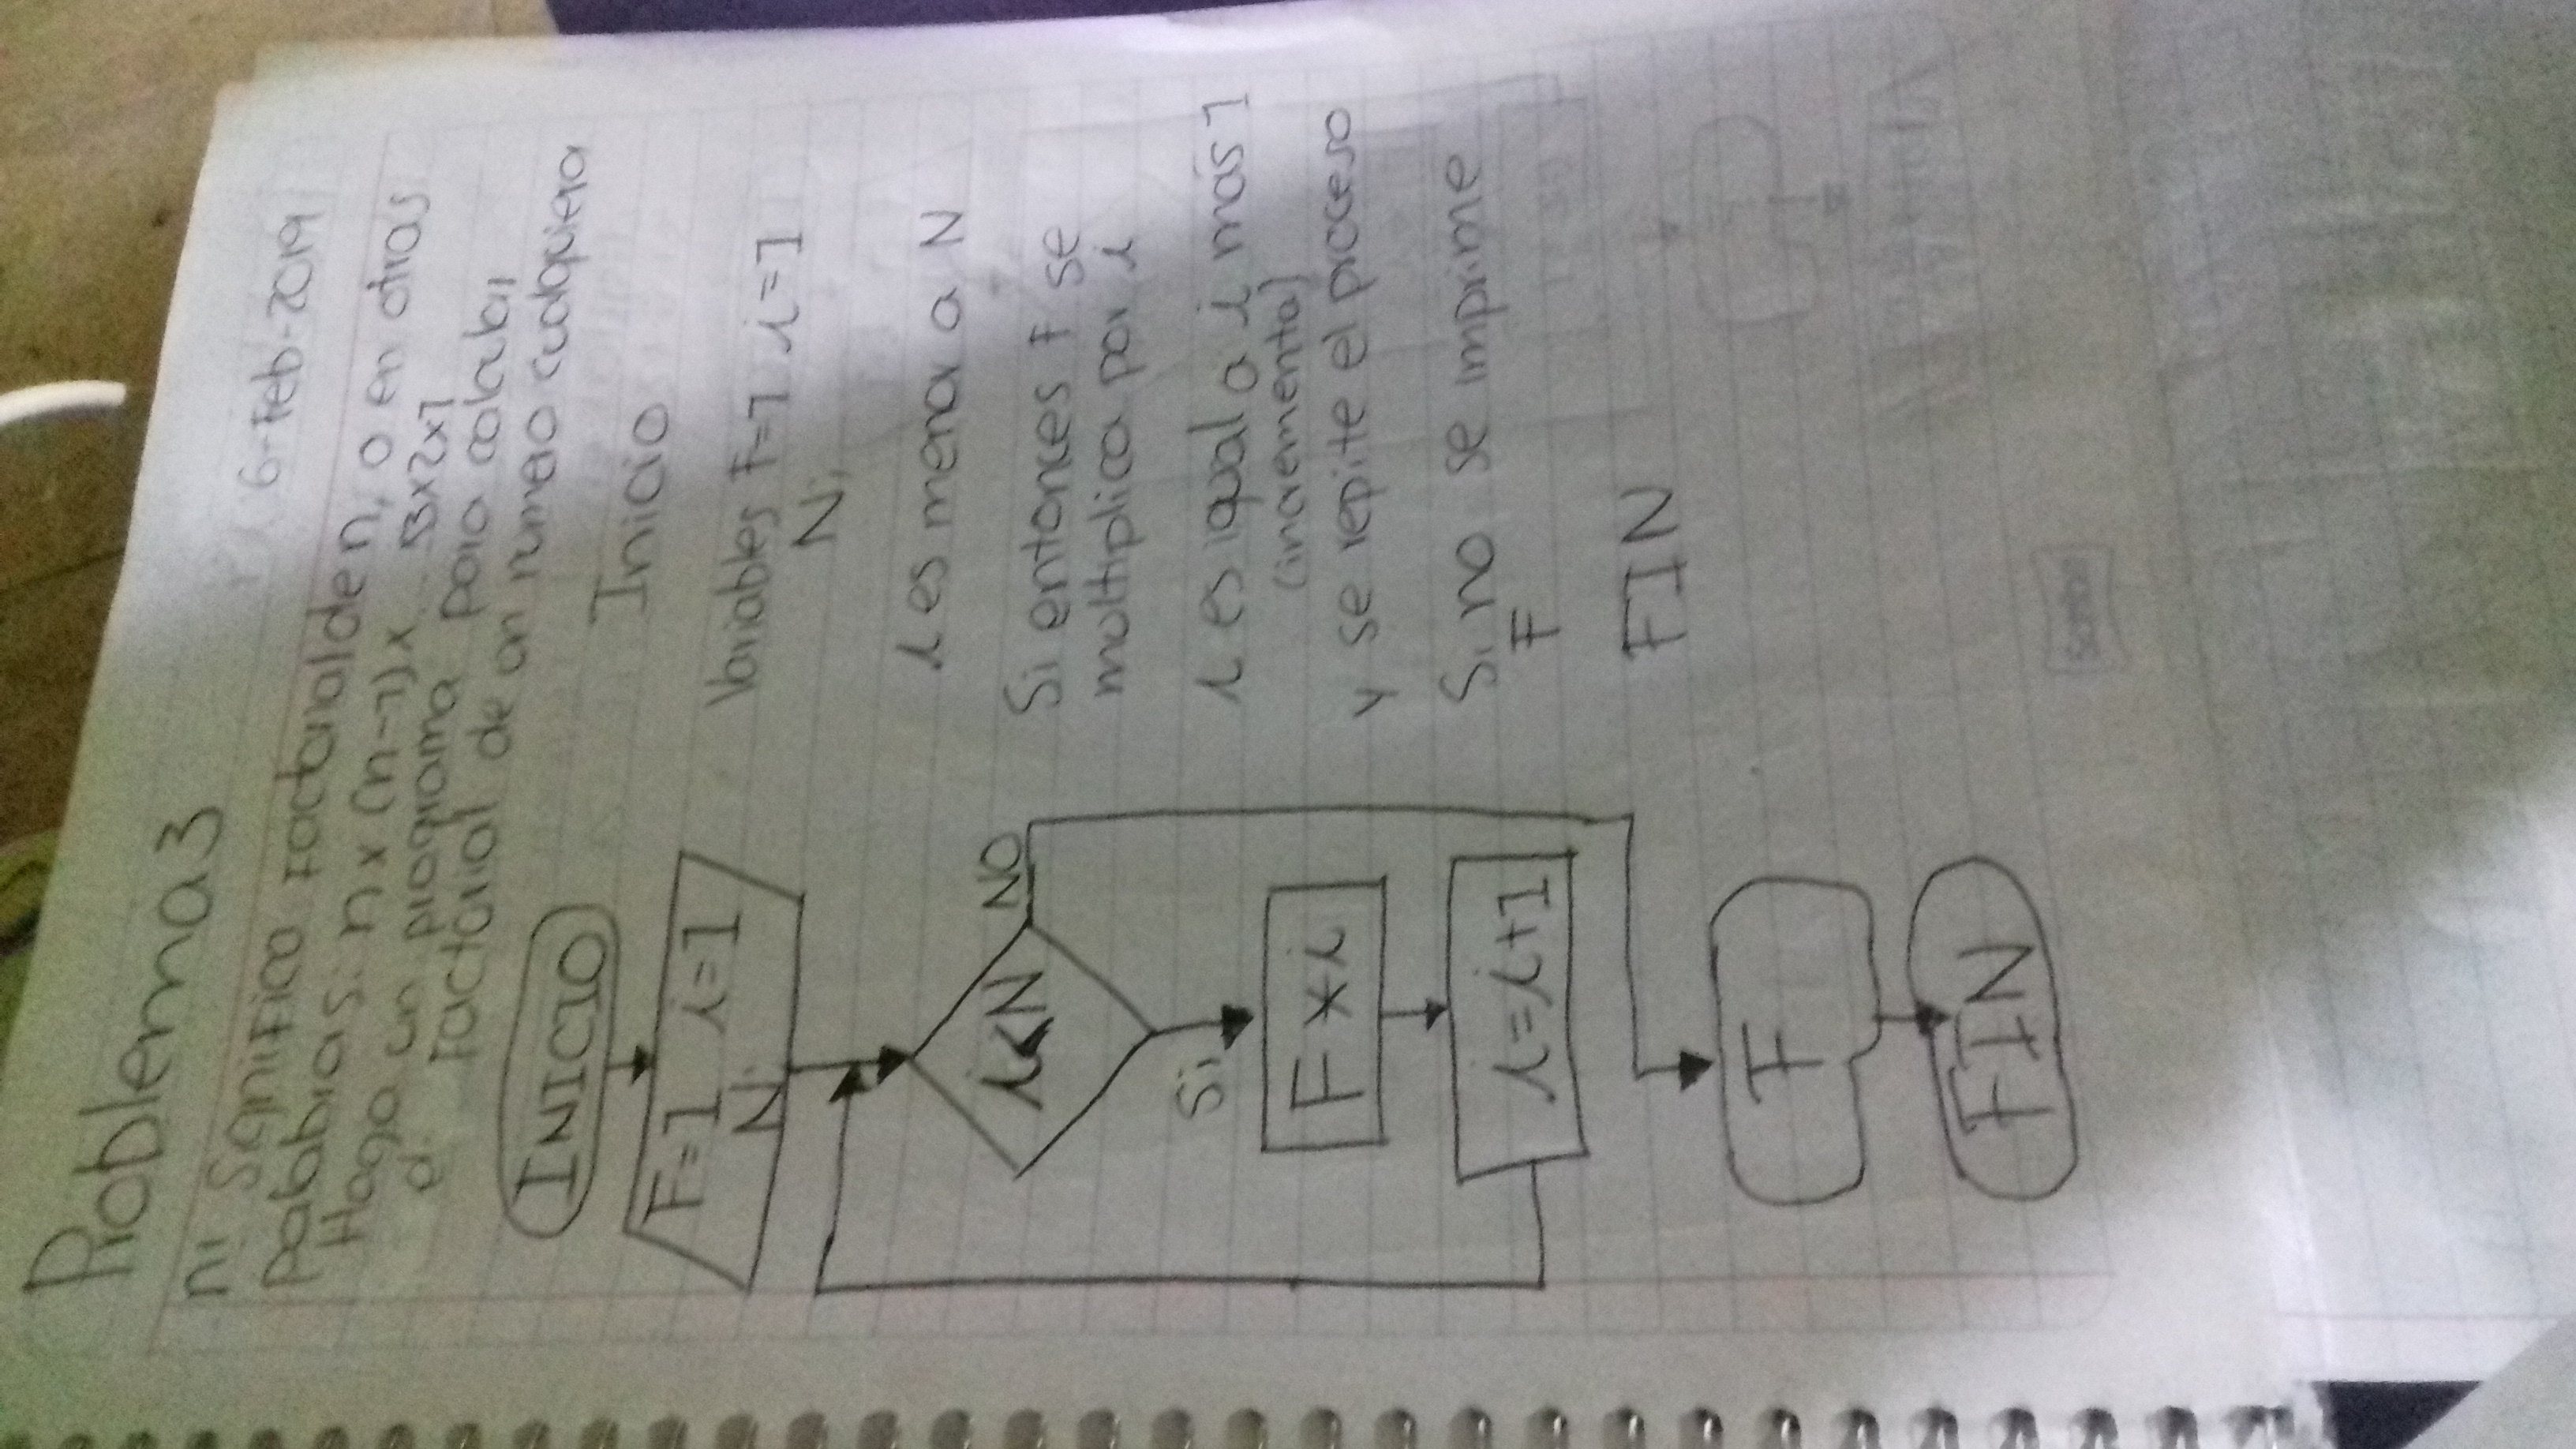 Problema 3
6-Feb-2019
n! Significa factorial de n, o en otras
palabras: n x (n-1) x ... 3x2x1
Haga un programa para calcular
el factorial de un número cualquiera
INICIO
F=1 i=1
N
i<N
NO
Si
F x i
i=i+1
F
FIN
Inicio
Variables F=1 i=1
N,
i es menor a N
Si entonces F se
multiplica por i
i es igual a i más 1
(incrementa)
y se repite el proceso
Si no se imprime
F
FIN